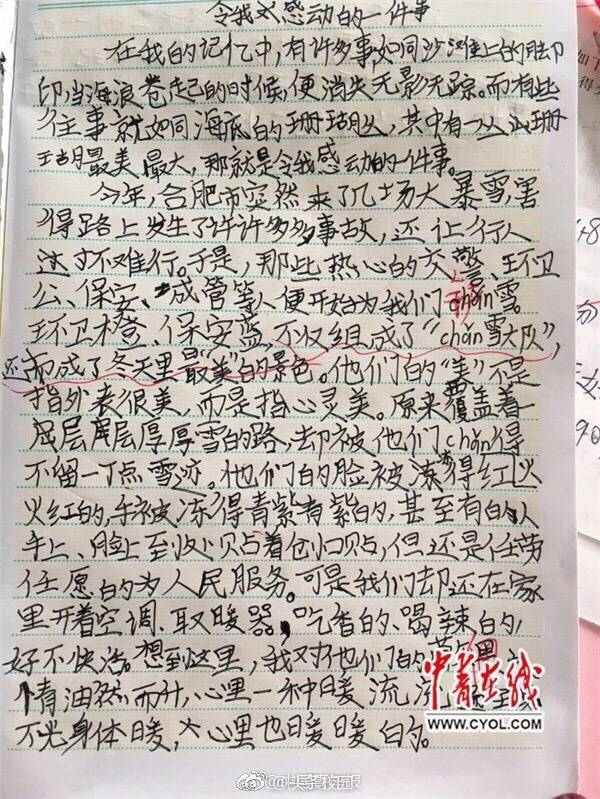 令我感动的一件事
在我的记忆中,有许多事如同沙滩上的脚
印,当海浪卷起的时候,便消失无影无踪。而有些
往事就如同海底的珊瑚丛,其中有一丛珊
瑚最美最大,那就是令我感动的一件事。
今年,合肥市突然来了几场大暴雪,害
得路上发生了许许多多事故,还让行人
过寸不难行。于是,那些热心的交警、环卫
公、保安、成管等人便开始为我们chǎn雪。
环卫橙、保安蓝,不仅组成了“chǎn雪大队”,
还而成了冬天里最“美”的景色。他们的“美”不是
指外表很美,而是指心灵美。原来覆盖着
层层厚厚雪的路,却被他们chǎn得
不留一丁点雪迹。他们的脸被冻得红火
火红的,手被冻得青紫青紫的,甚至有的人
手上、脸上至少贴着创口贴,但还是任劳
任愿的为人民服务。可是我们却还在家
里开着空调、取暖器,吃香的、喝辣的,
好不快活。想到这里,我对他们的
情油然而升,心里一种暖流
不光身体暖,心里也暖暖的。
中青在线
www.CYOL.com
@头条校报